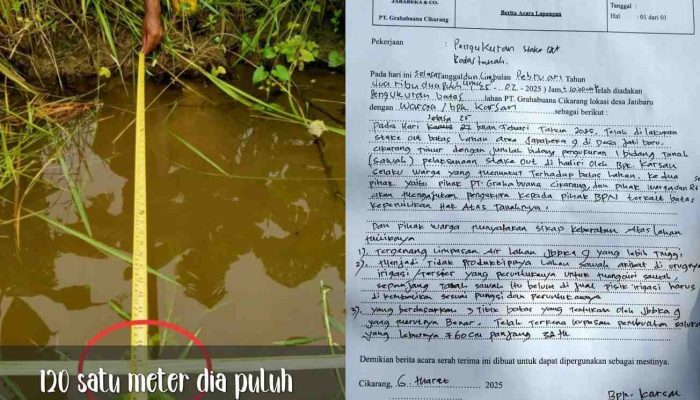 120 satu meter dia puluh
JABABEKA & CO.
PT. Grahabuana Cikarang
Berita Acara Lapangan
Tanggal :
Hal : 01 dari 01
Pekerjaan : Pengukuran Stake Out
Batas Tanah.
Pada hari ini Selasa Tanggal dua Lima bulan Februari Tahun
dua ribu dua Puluh Lima ( 25 - 02 - 2025 ) Jam telah diadakan
Pengukuran batas lahan PT. Grahabuana Cikarang lokasi desa Jatibaru
dengan Warga / bpk Karsan sebagai berikut :
Selasa 25
Pada Hari bulan Tahun 2025, Telah di lakukan
Stake out batas Lahan area Jababeka 9 di Desa Jati baru,
Cikarang Timur dengan Jumlah bidang pengukuran 1 bidang Tanah
(Sawah) pelaksanaan Stake Out di hadiri oleh Bpk Karsan
selaku warga yang menuntut Terhadap batas Lahan. Kedua
pihak yaitu pihak PT. Grahabuana Cikarang, dan pihak
akan mengajukan pengukuran kepada pihak BPN terkait batas
kepemilikan Hak Atas Tanahnya.
Dan pihak warga menyatakan sikap keberatan Atas lahan
miliknya
1). Tergenang Limpasan Air Lahan Jbbka 9 yang lebih Tinggi
2). menjadi Tidak Produktipnya Lahan Sawah akibat di urugnya
irigasi Terster yang peruntukannya untuk mengairi sawah
sepanjang Tanah sawah itu belum di Jual pisik irigasi harus
di kembalikan sesuai Fungsi dan Peruntukannya
3). yang berdasarkan 3 Titik batas yang Tentukan oleh Jbbka 9
yang Benar. Telah Terkena Limpasan pembuatan
yang Lebarnya 760 cm panjang
Demikian berita acara serah terima ini dibuat untuk dapat dipergunakan sebagai mestinya.
Cikarang, 6 Maret 2025
Bpk. Karsan